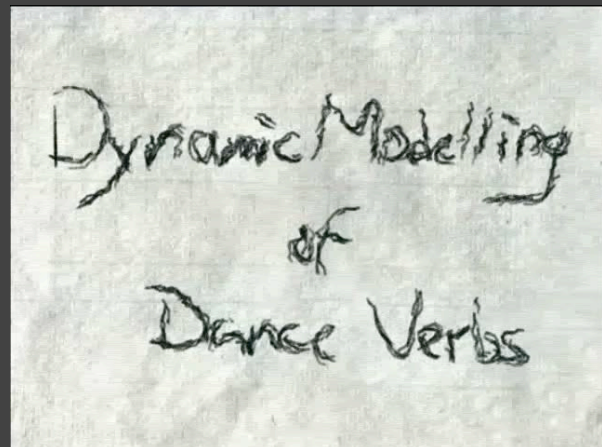 Dynamic Modelling
of
Dance Verbs